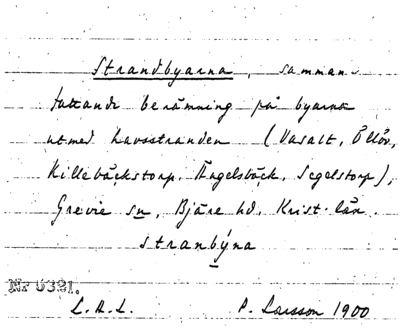 Strandbyarna, samman-
fattande benämning på byarna
utmed havsstranden (Vasalt, Öllöv,
Killebäckstorp, Ängelsbäck, Segelstorp),
Grevie sn, Bjäre hd. Krist. län.
stranbýna
Nr 0321.
L.A.L. P. Larsson 1900